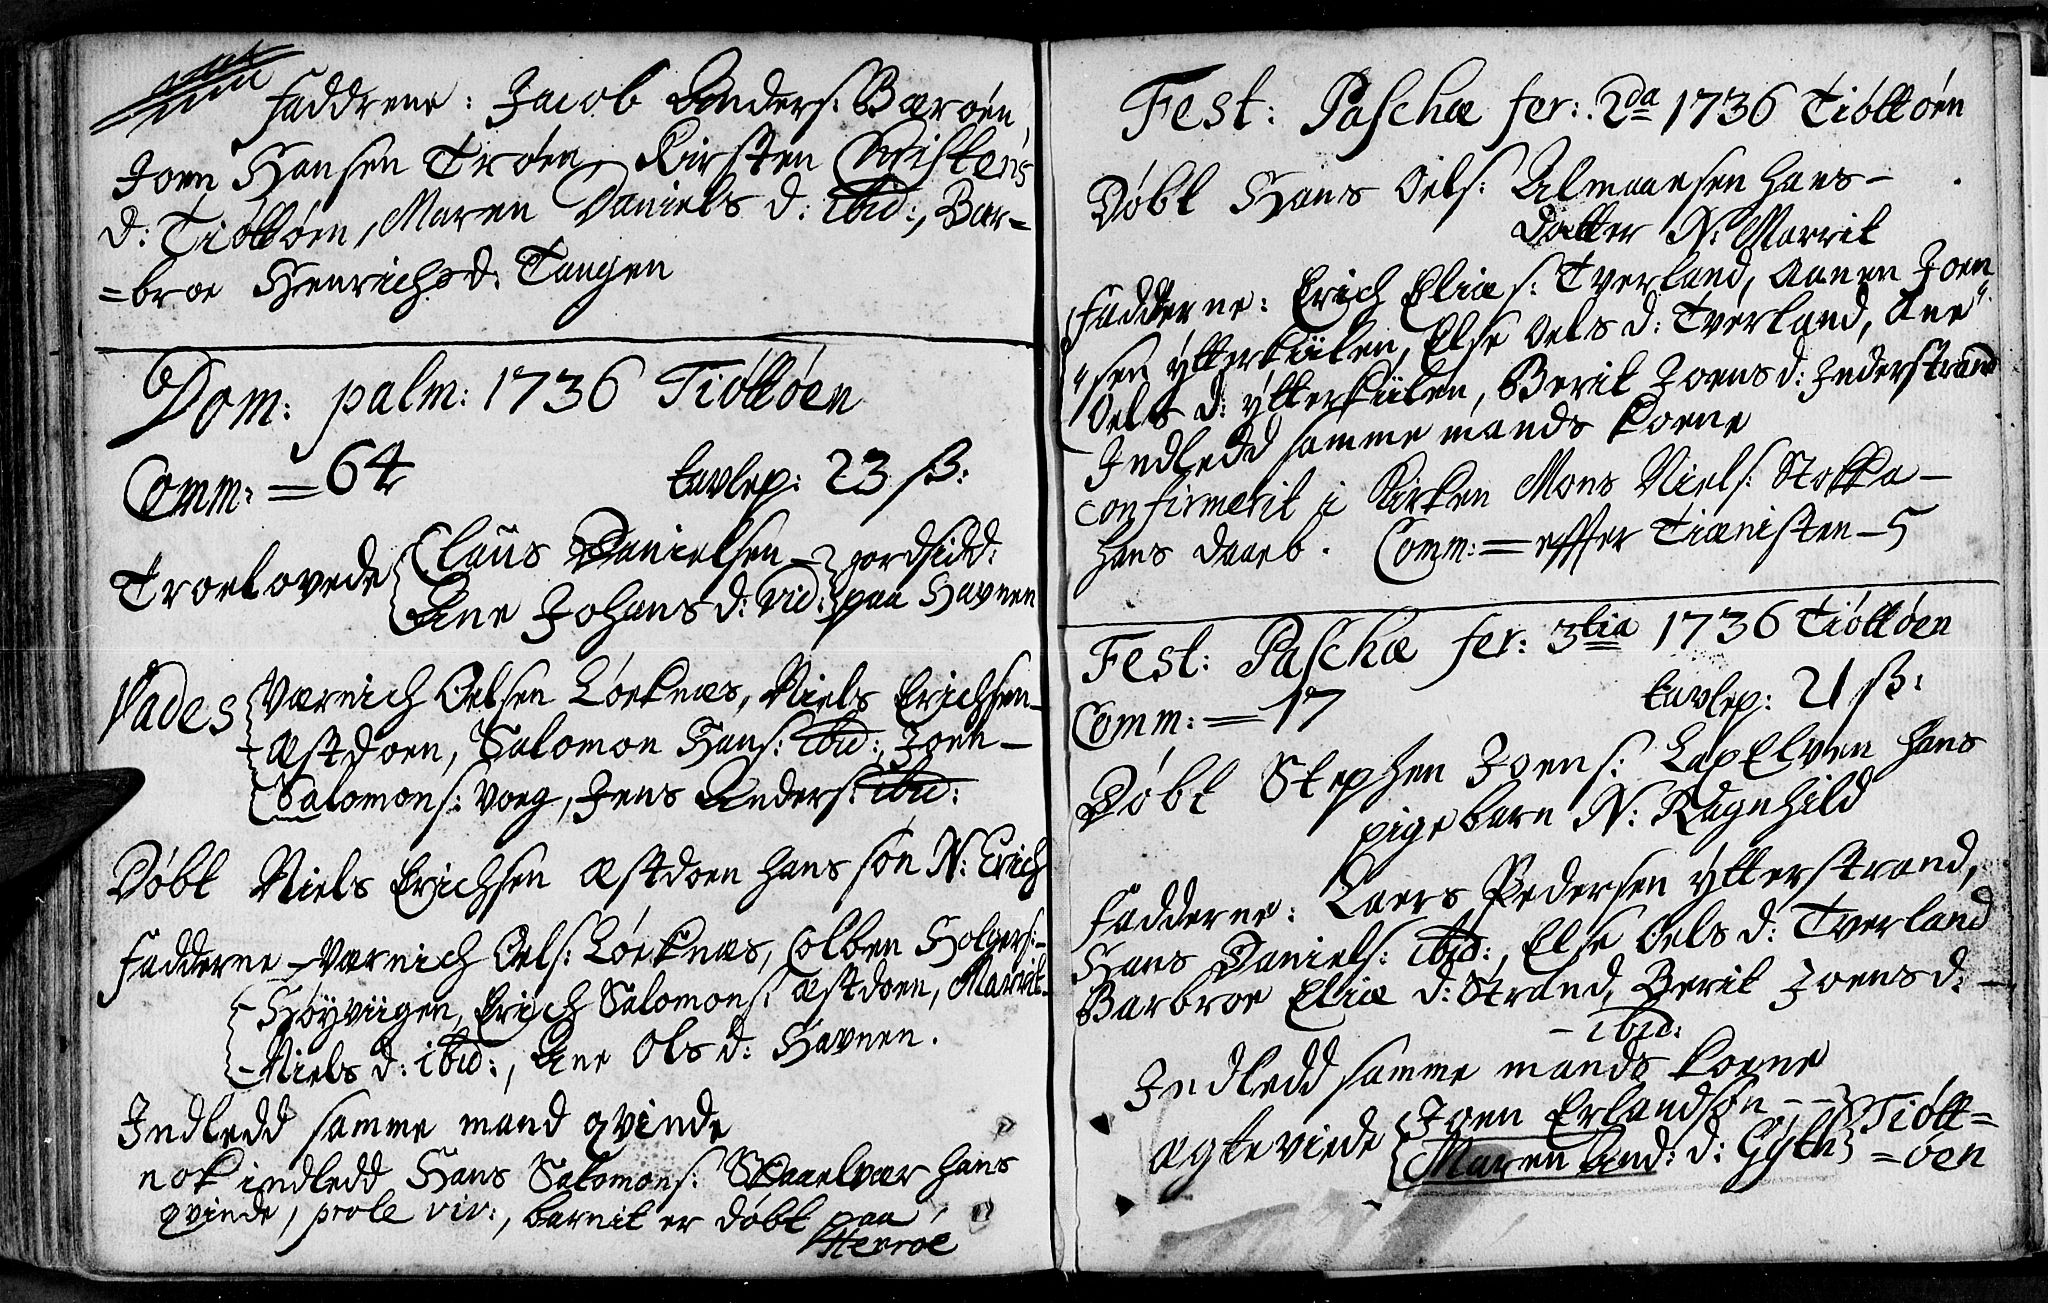 Faddrene: Jacob Anders: Barøen,
Joen Hansen Trøen, Kirsten Christens
d: Tiøttøen, Maren Daniels d: ibid:, Bar=
=broe Henrichsd: Tangen
Dom: palm: 1736 Tiøttøen
Comm: = 64 tavlep: 23 ß:
Troelovede Claus Danielsen jordsidd:
Ane Johans d: vid: paa Havnen
Vades Værnich Oelsen Løeknæs, Niels Erichsen
Æstdoen, Salomon Hans: ibid:, Joen
Salomons: Voeg, Jens Anders: ibid:
Døbt Niels Erichsen Æstdoen hans søn N: Erich
Fadderne Værnich Oels: Løeknæs, Colben Holgers:
Høyviigen, Erich Salomons: Æstdoen, Marrit
Niels d: ibid:, Ane Ols d: Havnen.
Indledd samme mand qvinde
nok indledd Hans Salomons: Skaaelvær hans
qvinde, prole viv:, barnit er døbt paa
Herrøe
Fest: Paschæ fer: 2da 1736 Tiøttøen
Døbt Hans Oels: Almaaesen hans
Datter N: Marrit
Fadderne: Erich Eliæ s: Tverland, Aanen Joen
"sen ytterkiilen, Else Oels d: Tverland, Ane"
Oels d: ytterkiilen, Berit Joens d: Inderstrand
Indledd samme mands koene
confirmerit i Kirken Mons Niels: Stokka
hans daab. Comm: = effter Tiænisten - 5
Fest: Paschæ fer: 3tia 1736 Tiøttøen
Comm: = 17 tavlep: 21 ß:
Døbt Stephen Joens: LapElven hans
pigebarn N: Ragnhild
Fadderne: Laers Pedersen ytterstrand,
Hans Daniels: ibid:, Else Oels d: Tverland
Barbroe Eliæ d: Strand, Berit Joens d:
- ibid:
Indledd samme mands koene
Ægteviede Joen Erlandsøn - - Tiøtt=
Maren And: d: =øen